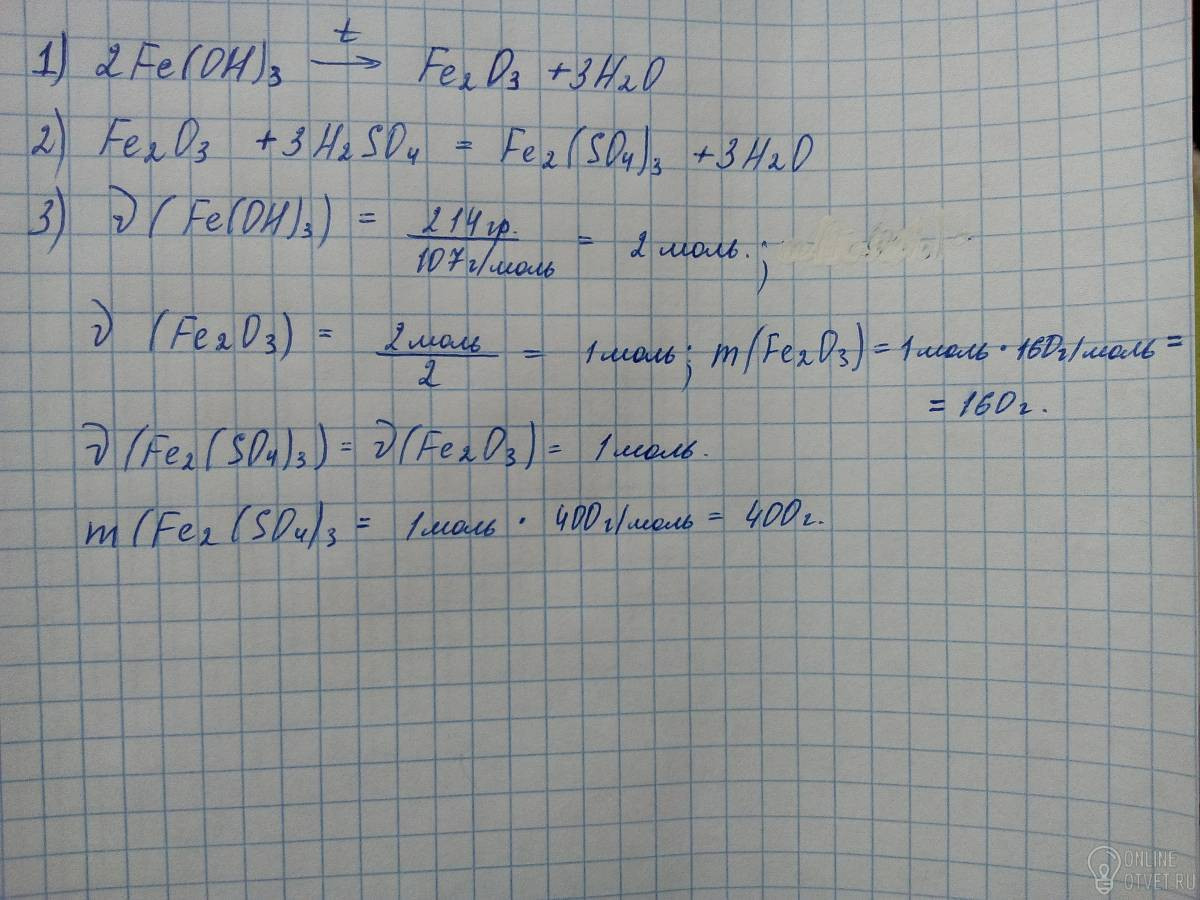 1) 2Fe(OH)₃ →ᵗ Fe₂O₃ + 3H₂O
2) Fe₂O₃ + 3H₂SO₄ = Fe₂(SO₄)₃ + 3H₂O
3) ν(Fe(OH)₃) = 214гр. / 107г/моль = 2 моль. ;
ν (Fe₂O₃) = 2моль / 2 = 1моль; m(Fe₂O₃) = 1моль · 160г/моль =
= 160г.
ν(Fe₂(SO₄)₃) = ν(Fe₂O₃) = 1моль.
m(Fe₂(SO₄)₃ = 1моль · 400г/моль = 400г.
ONLINE
OTVET.RU